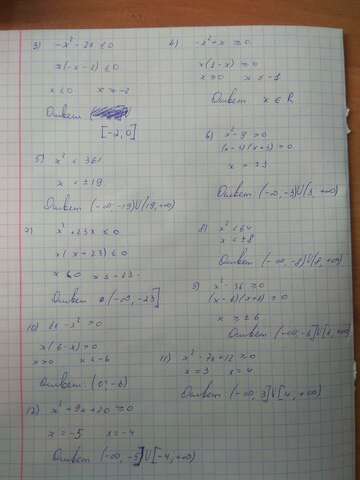 3) -x² - 2x ≤ 0
x(-x-2) ≤ 0
x < 0 x = -2
Ответ
[-2; 0]
4) -x² + x ≥ 0
x(1-x) = 0
x = 0
Ответ x ∈ R
5) x² < 361
x = ±19
Ответ (-∞; -19)U(19, +∞)
6) x² - 9 > 0
x = ±3
Ответ (-∞, -3)U(3, +∞)
7) x² + 23x ≤ 0
x(x+23) ≤ 0
Ответ (-∞, -23]
8) x² < 64
x = ±8
Ответ (-∞, -8)U(8, +∞)
9) x² - 36 ≥ 0
(x-6)(x+6) = 0
x = ±6
Ответ
10) 6x - x² > 0
x(6-x) = 0
x = -6
Ответ (0; -6)
11) x² - 7x + 12 ≥ 0
x = 3 x = 4
Ответ (-∞, 3]U[4, +∞)
12) x² + 9x + 20 ≥ 0
x = -5 x = -4
Ответ (-∞, -5]U[-4, +∞)